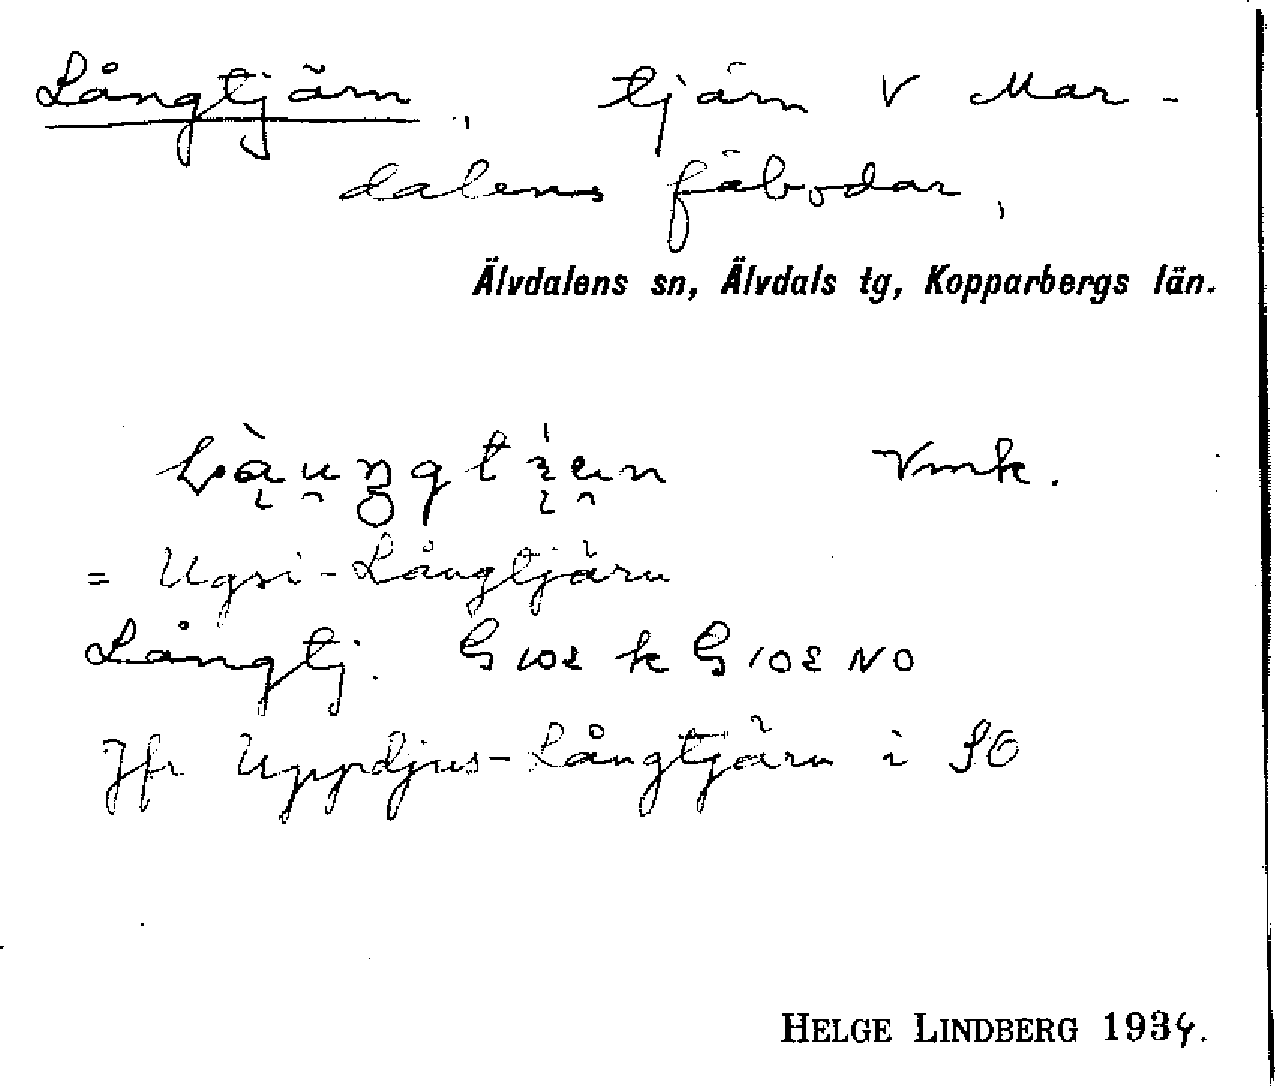 Långtjärn, tjärn V Mar-
dalens fäbodar,
Älvdalens sn, Älvdals tg, Kopparbergs län.
Vmk.
= Ugsi-Långtjärn
Långtj. G 102 k G 102 NO
Jfr Uppdjus-Långtjärn i SO
HELGE LINDBERG 1934.